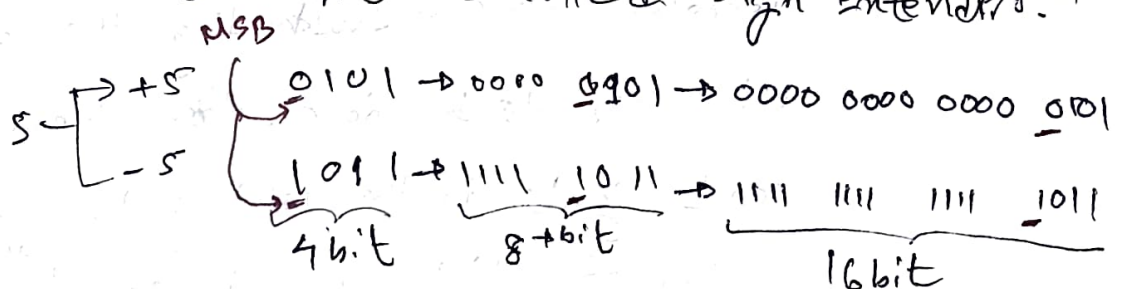 sign extension.
MSB
5 → +5 0101 → 0000 0101 → 0000 0000 0000 0101
- 5 1011 → 1111 1011 → 1111 1111 1111 1011
4 bit 8 bit 16 bit